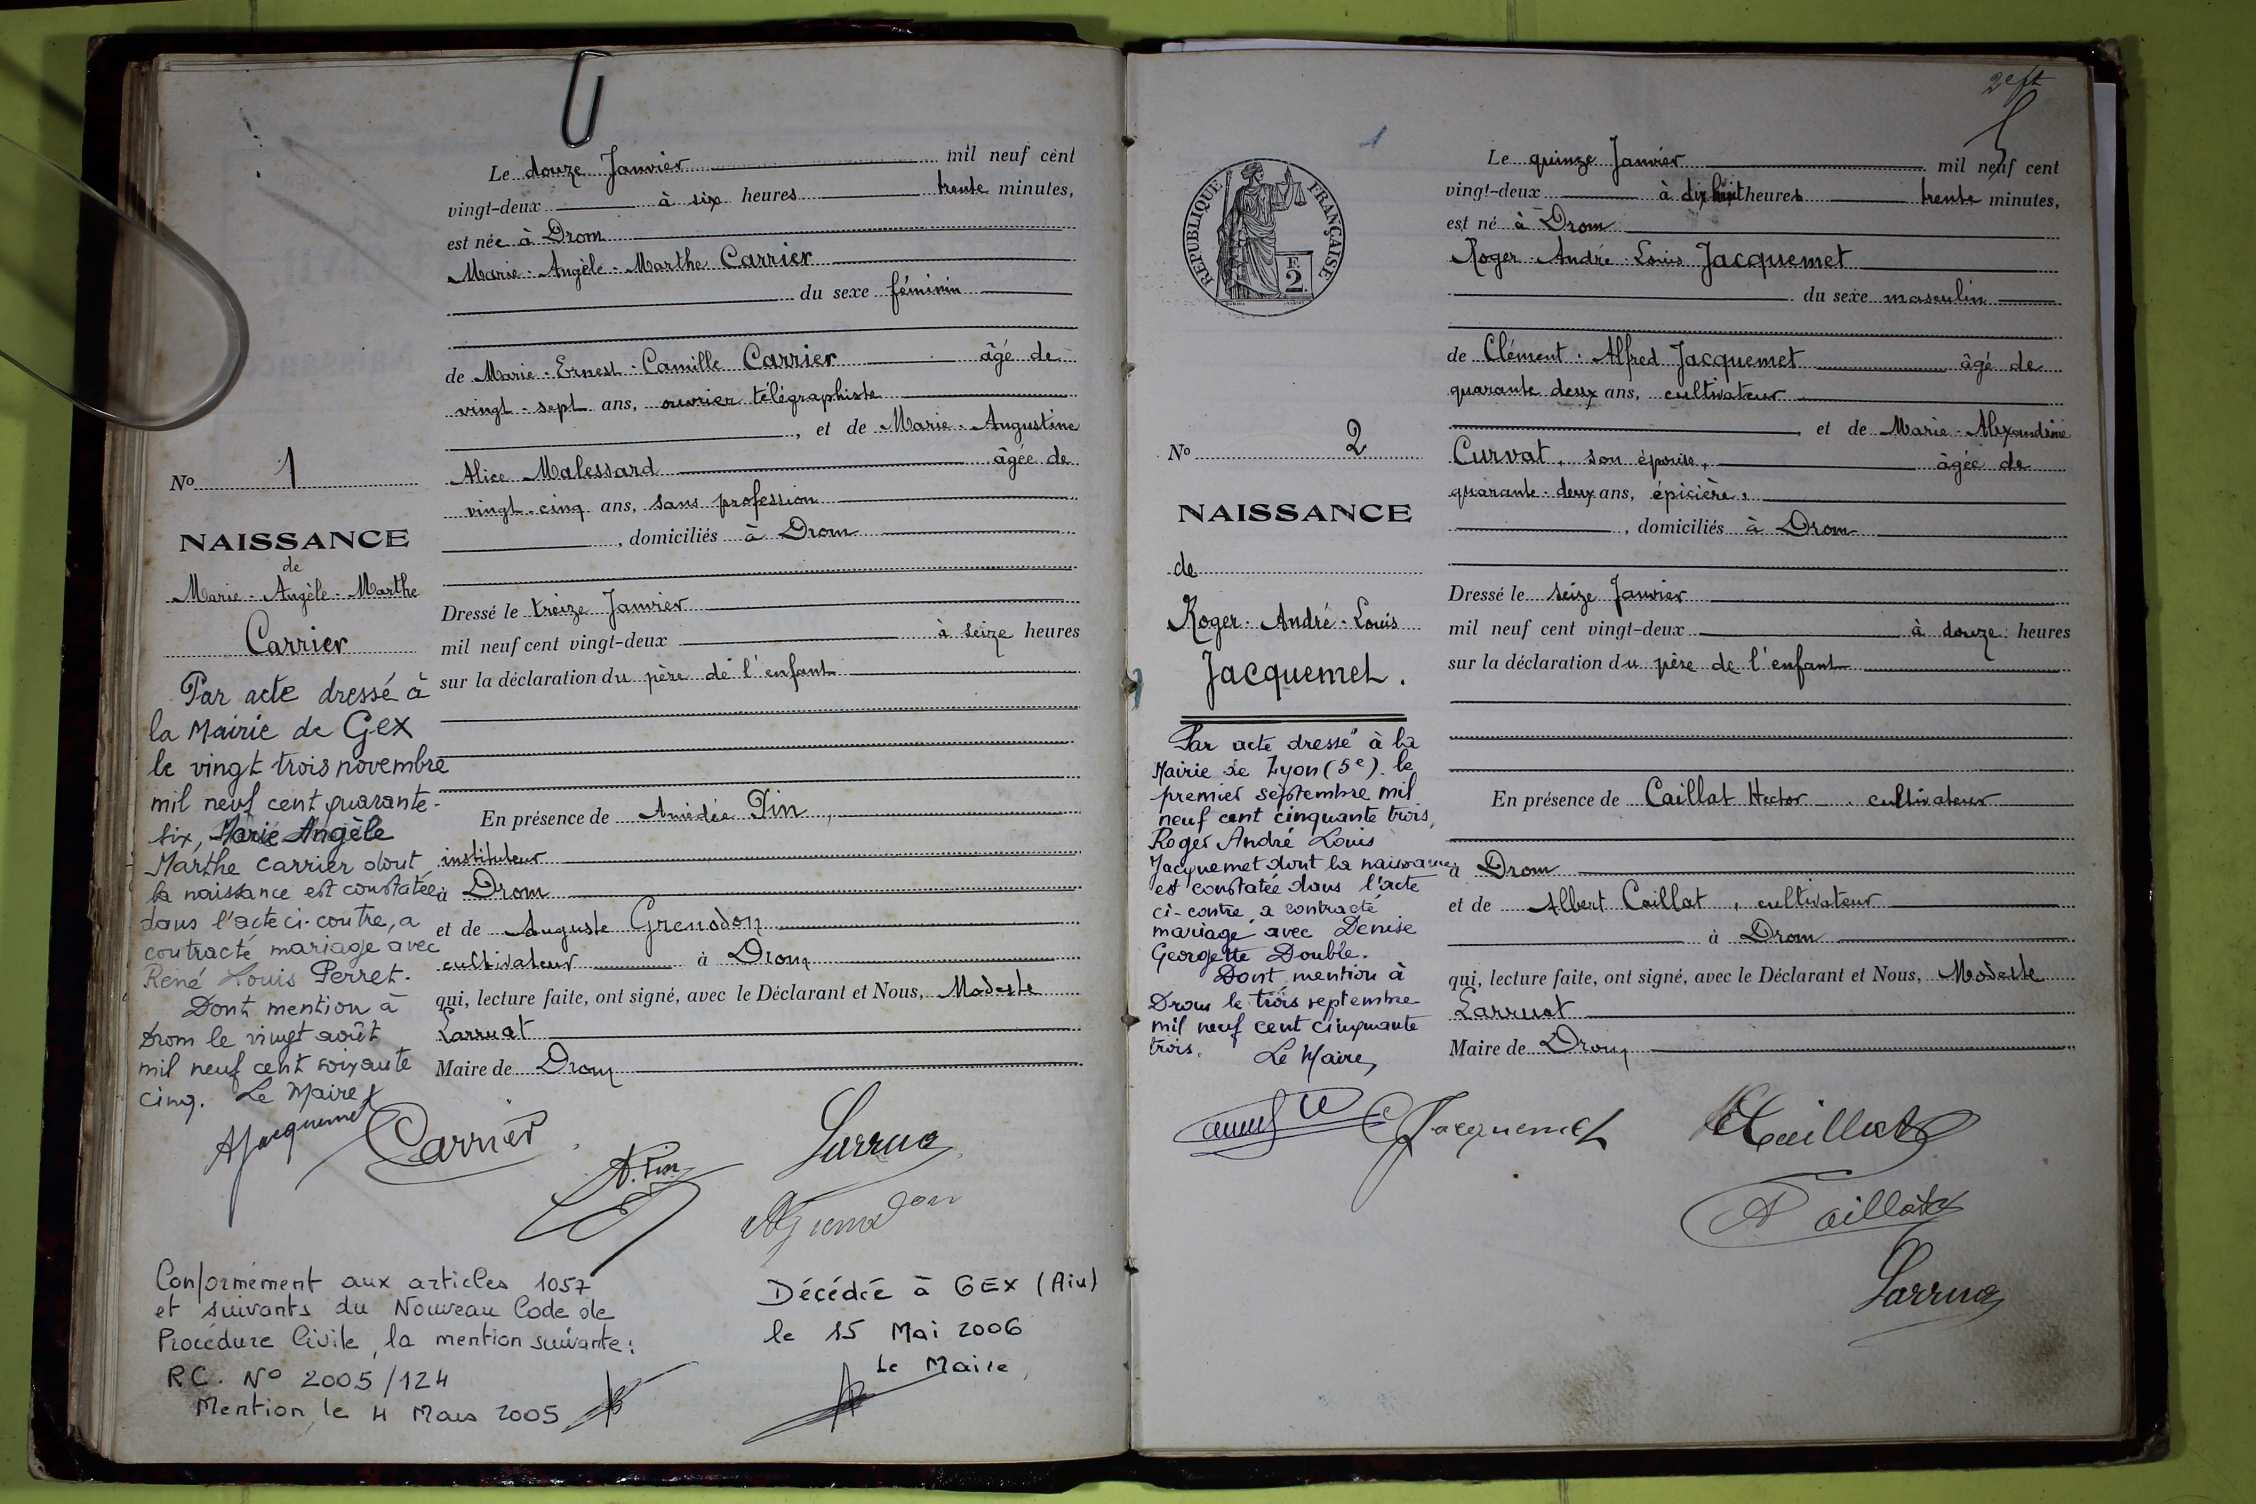 Le douze Janvier mil neuf cent
vingt-deux à six heures trente minutes,
est née à Drom
Marie - Angèle - Marthe Carrier
du sexe féminin
de Marie - Ernest - Camille Carrier âgé de
vingt - sept ans, ouvrier télégraphiste
, et de Marie - Augustine
Alice Malessard âgée de
vingt-cinq ans, sans profession
, domiciliés à Drom
Dressé le treize Janvier
mil neuf cent vingt-deux à seize heures
sur la déclaration du père de l'enfant
En présence de Amédée Pin,
instituteur
à Drom
et de Auguste Grenadon
cultivateur à Drom
qui, lecture faite, ont signé, avec le Déclarant et Nous, Modeste
Larruat
Maire de Drom
No 1
NAISSANCE
de
Marie - Angèle - Marthe
Carrier
Par acte dressé à
la Mairie de Gex
le vingt trois novembre
mil neuf cent quarante-
six, Marie Angèle
Marthe Carrier dont
la naissance est constatée
dans l'acte ci-contre, a
contracté mariage avec
René Louis Perret.
Dont mention à
Drom le vingt août
mil neuf cent soixante
cinq. Le Maire
AJacquemet
Carrier
A. Pin
Larrua
AGrenadon
Conformément aux articles 1057
et suivants du Nouveau Code de
Procédure Civile, la mention suivante:
RC. No 2005/124
Mention le 4 Mars 2005
Décédée à GEX (Ain)
le 15 Mai 2006
Le Maire,
2 eft
1
REPUBLIQUE FRANÇAISE
F.
2.
Le quinze Janvier mil neuf cent
vingt-deux à dix huit heures trente minutes,
est né à Drom
Roger - André - Louis Jacquemet
du sexe masculin
de Clément - Alfred Jacquemet âgé de
quarante deux ans, cultivateur
et de Marie - Alexandrine
Curvat, son épouse, âgée de
quarante-deux ans, épicière,
, domiciliés à Drom
Dressé le seize Janvier
mil neuf cent vingt-deux à douze heures
sur la déclaration du père de l'enfant
En présence de Caillat Hector, cultivateur
à Drom
et de Albert Caillat, cultivateur
à Drom
qui, lecture faite, ont signé, avec le Déclarant et Nous, Modeste
Larruat
Maire de Drom
No 2
NAISSANCE
de
Roger - André - Louis
Jacquemet.
Par acte dressé à la
Mairie de Lyon (5e) le
premier septembre mil
neuf cent cinquante trois,
Roger André Louis
Jacquemet dont la naissance
est constatée dans l'acte
ci-contre a contracté
mariage avec Denise
Georgette Double.
Dont mention à
Drom le trois septembre
mil neuf cent cinquante
trois. Le Maire,
CJacquemet
HCaillat
A Caillat
Larrua